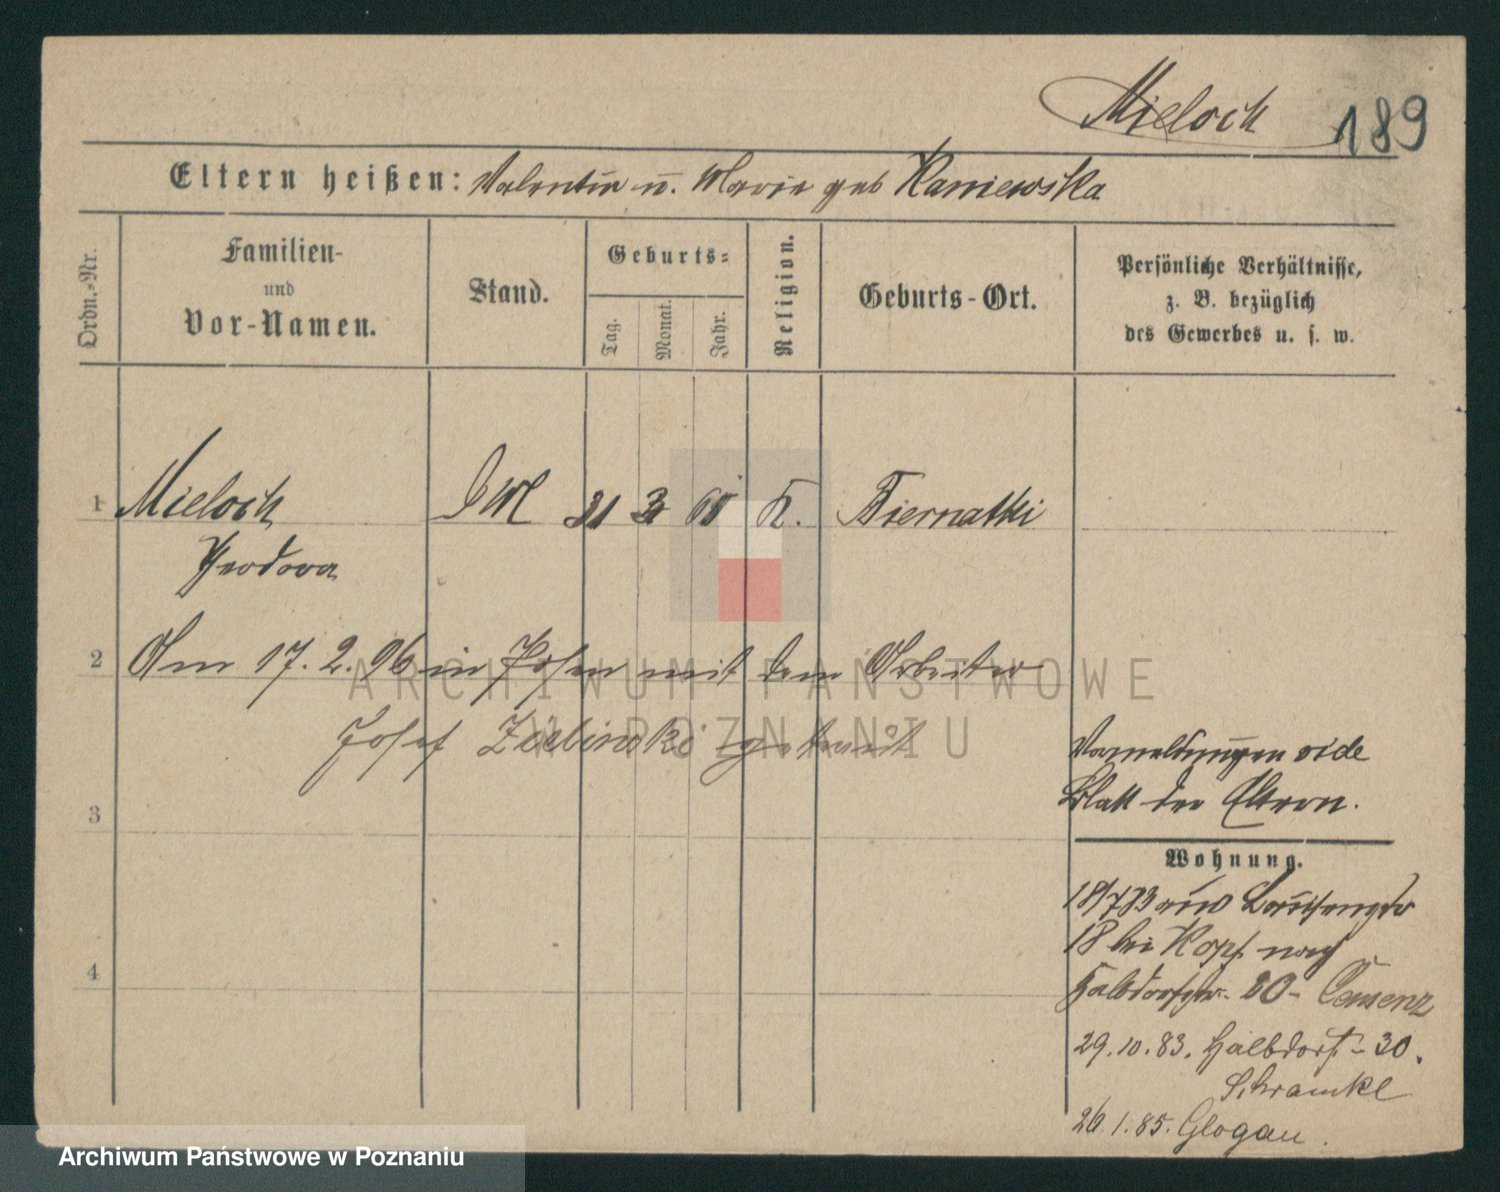 Mieloch 189
Eltern heißen: Valentin u. Marie geb Kaniewska
Ordn.-Nr.
Familien-
und
Vor-Namen.
Stand.
Geburts-
Tag.
Monat.
Jahr.
Religion.
Geburts-Ort.
Persönliche Verhältnisse,
z. B. bezüglich
des Gewerbes u. s. w.
1 Mieloch 31 3 K. Biernatki
Theodora
2 Am 17. 2. 96 in Posen mit dem Arbeiter
Josef Zielinski getraut
3
4
Vormeldungen vide
Blatt der Eltern.
Wohnung.
18/7 83 aus Louisenstr
18 bei Kopf nach
Halbdorfstr. 20-
29. 10. 83. Halbdorf- 30.
Schramke
26. 1. 85. Glogau.
ARCHIWUM PAŃSTWOWE
W POZNANIU
Archiwum Państwowe w Poznaniu